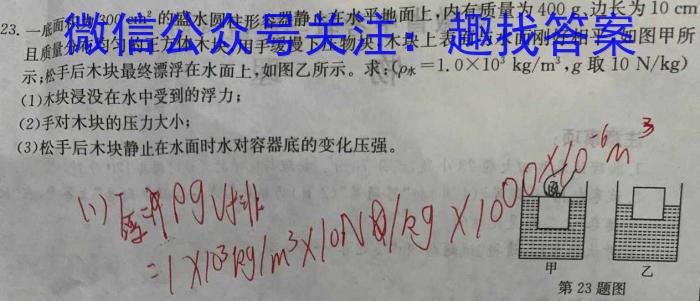 23. 一底面积为300 cm²的盛水圆柱形容器静止在水平地面上,内有质量为400 g,边长为10 cm
微信公众号关注：趣找答案
且质量分布均匀的正方体木块,用手缓慢下压物块,木块上表面与水面刚好相平,如图甲所
示;松手后木块最终漂浮在水面上,如图乙所示。求:(ρ水=1.0×10³ kg/m³,g 取 10 N/kg)
(1)木块浸没在水中受到的浮力;
(2)手对木块的压力大小;
(3)松手后木块静止在水面时水对容器底的变化压强。
(1) F浮=ρgV排
=1×10³kg/m³×10N/kg×1000×10⁻⁶m³
甲 乙
第 23 题图